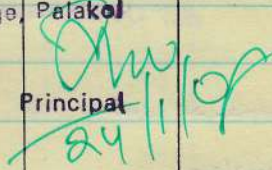 ge, Palakol
Principal
24/1/08